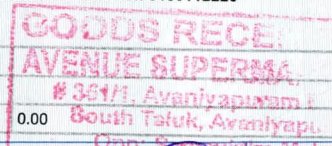 GOODS RECE
AVENUE SUPERMA
# 361/1, Avaniyapuram
0.00
South Taluk, Avaniyapu
Opp: